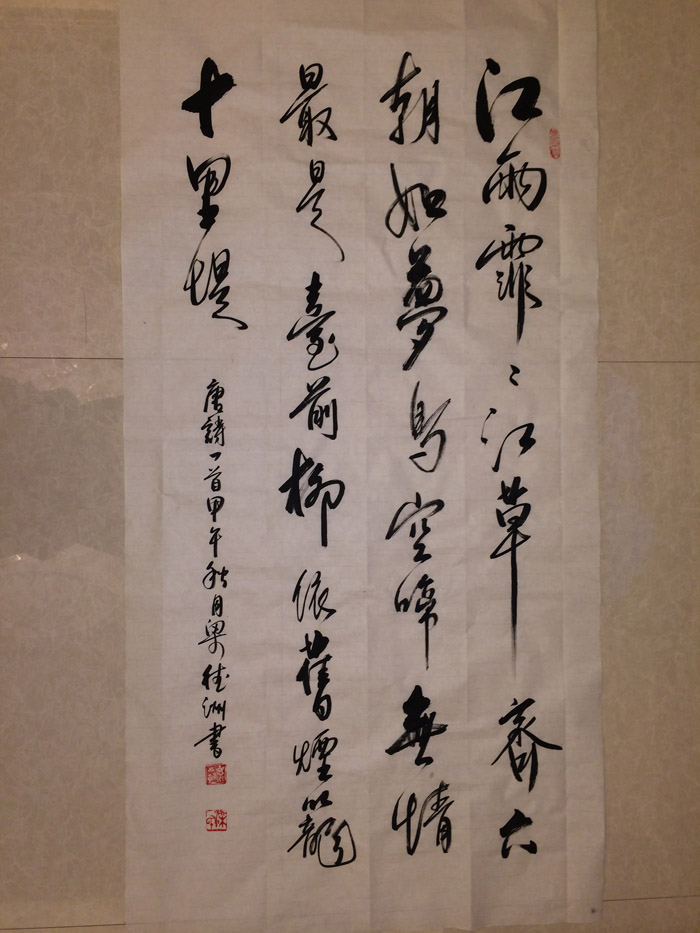 江雨霏〻江草齐六
朝如夢鸟空啼無情
最是臺前柳依舊煙籠
十里堤
唐詩一首甲午秋月梁德洲書